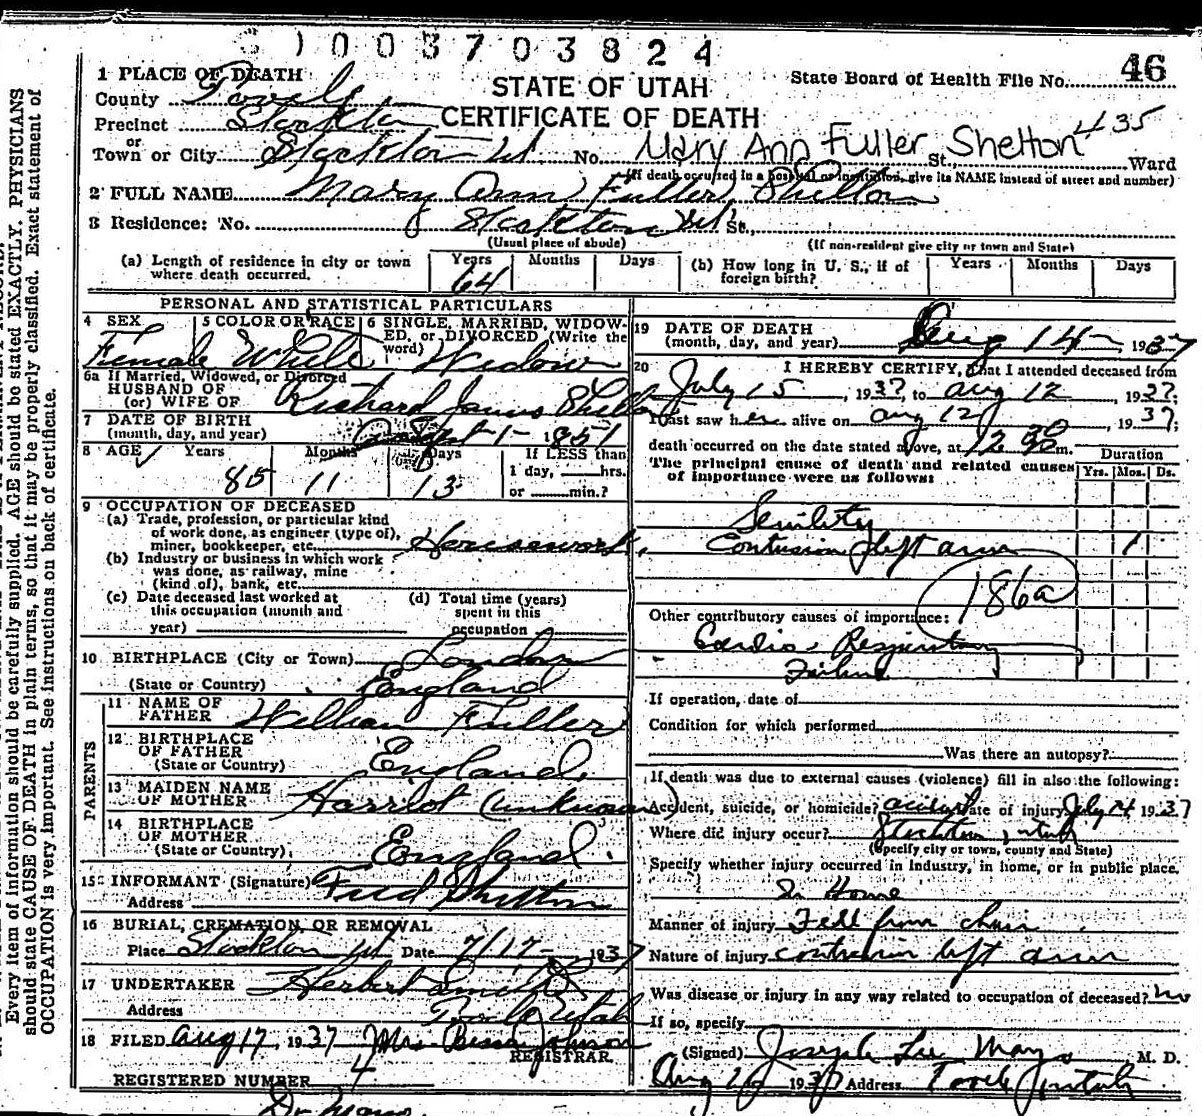 1003703824
46
1 PLACE OF DEATH
STATE OF UTAH
State Board of Health File No.
County Tooele
CERTIFICATE OF DEATH
Precinct Stockton
435
or
Town or City Stockton Ut No. Mary Ann Fuller Shelton St., Ward
(If death occurred in a hospital or institution, give its NAME instead of street and number)
2 FULL NAME Mary Ann Fuller Shelton
3 Residence: No. Stockton Ut. St.,
(Usual place of abode) (If non-resident give city or town and State)
(a) Length of residence in city or town where death occurred. Years 64 Months Days
(b) How long in U. S., if of foreign birth? Years Months Days
PERSONAL AND STATISTICAL PARTICULARS
4 SEX Female
5 COLOR OR RACE White
6 SINGLE, MARRIED, WIDOWED, or DIVORCED (Write the word) Widow
6a If Married, Widowed, or Divorced
HUSBAND OF
(or) WIFE OF Richard James Shelton
7 DATE OF BIRTH
(month, day, and year) August 1- 1851
8 AGE Years 85 Months 11 Days 13
If LESS than
1 day, hrs.
or min.?
9 OCCUPATION OF DECEASED
(a) Trade, profession, or particular kind
of work done, as engineer (type of),
miner, bookkeeper, etc. Housework
(b) Industry or business in which work
was done, as railway, mine
(kind of), bank, etc.
(c) Date deceased last worked at
this occupation (month and
year)
(d) Total time (years)
spent in this
occupation
10 BIRTHPLACE (City or Town) London
(State or Country) England
PARENTS
11 NAME OF
FATHER William Fuller
12 BIRTHPLACE
OF FATHER
(State or Country) England
13 MAIDEN NAME
OF MOTHER Harriot (unknown)
14 BIRTHPLACE
OF MOTHER
(State or Country) England.
15 INFORMANT (Signature) Fred Shelton
Address
16 BURIAL, CREMATION, OR REMOVAL
Place Stockton Ut Date 7/17- 1937
17 UNDERTAKER Herbert Smith
Address Tooele Utah
18 FILED Aug 17, 1937 Mrs. Johnson
REGISTRAR.
REGISTERED NUMBER 4
Dr Mays.
19 DATE OF DEATH
(month, day, and year) Aug 14- 1937
20 I HEREBY CERTIFY, that I attended deceased from
July 15, 1937, to Aug 12 1937;
I last saw her alive on Aug 12, 1937;
death occurred on the date stated above, at 12 30 m.
The principal cause of death and related causes
of importance were as follows:
Duration
Yrs. Mos. Ds.
Senility
Contusion of left arm 1
186a
Other contributory causes of importance:
Cardio Respiratory
Failure
If operation, date of
Condition for which performed
Was there an autopsy?
If death was due to external causes (violence) fill in also the following:
Accident, suicide, or homicide? accident Date of injury July 14 1937
Where did injury occur? Stockton, Utah
(Specify city or town, county and State)
Specify whether injury occurred in industry, in home, or in public place.
In Home
Manner of injury Fell from chair
Nature of injury contusion left arm
Was disease or injury in any way related to occupation of deceased? no
If so, specify
(Signed) Joseph Lee Mays M. D.
Aug 1937 Address Tooele Utah
Every item of information should be carefully supplied. AGE should be stated EXACTLY. PHYSICIANS
should state CAUSE OF DEATH in plain terms, so that it may be properly classified. Exact statement of
OCCUPATION is very important. See instructions on back of certificate.